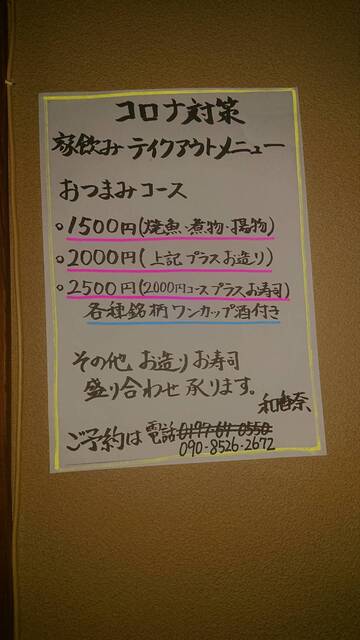 コロナ対策
家飲みテイクアウトメニュー
おつまみコース
・1500円(焼魚・煮物・揚物)
・2000円(上記プラスお造り)
・2500円(2000円コースプラスお寿司)
各種銘柄ワンカップ酒付き
その他、お造りお寿司
盛り合わせ承ります。
ご予約は電話0197-67-0550
090-8526-2672